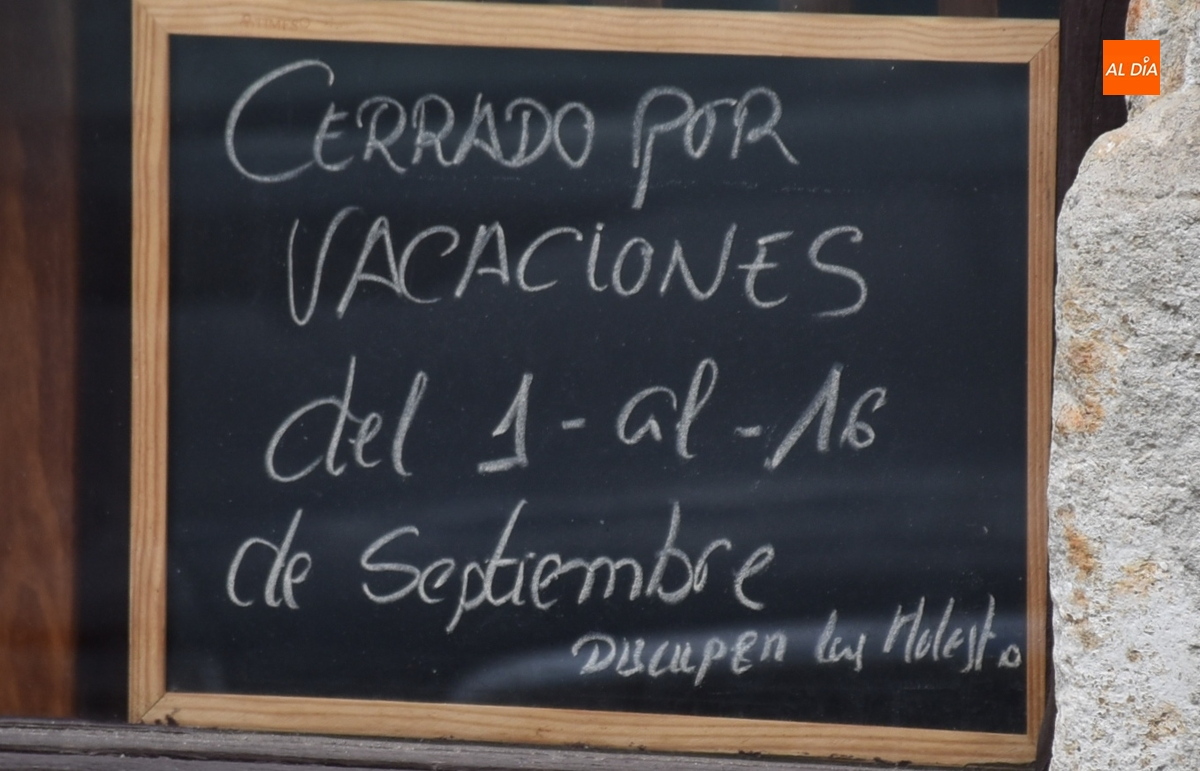 AL DÍA
CERRADO POR
VACACIONES
del 1 - al - 16
de Septiembre
DISCULPEN las Molest